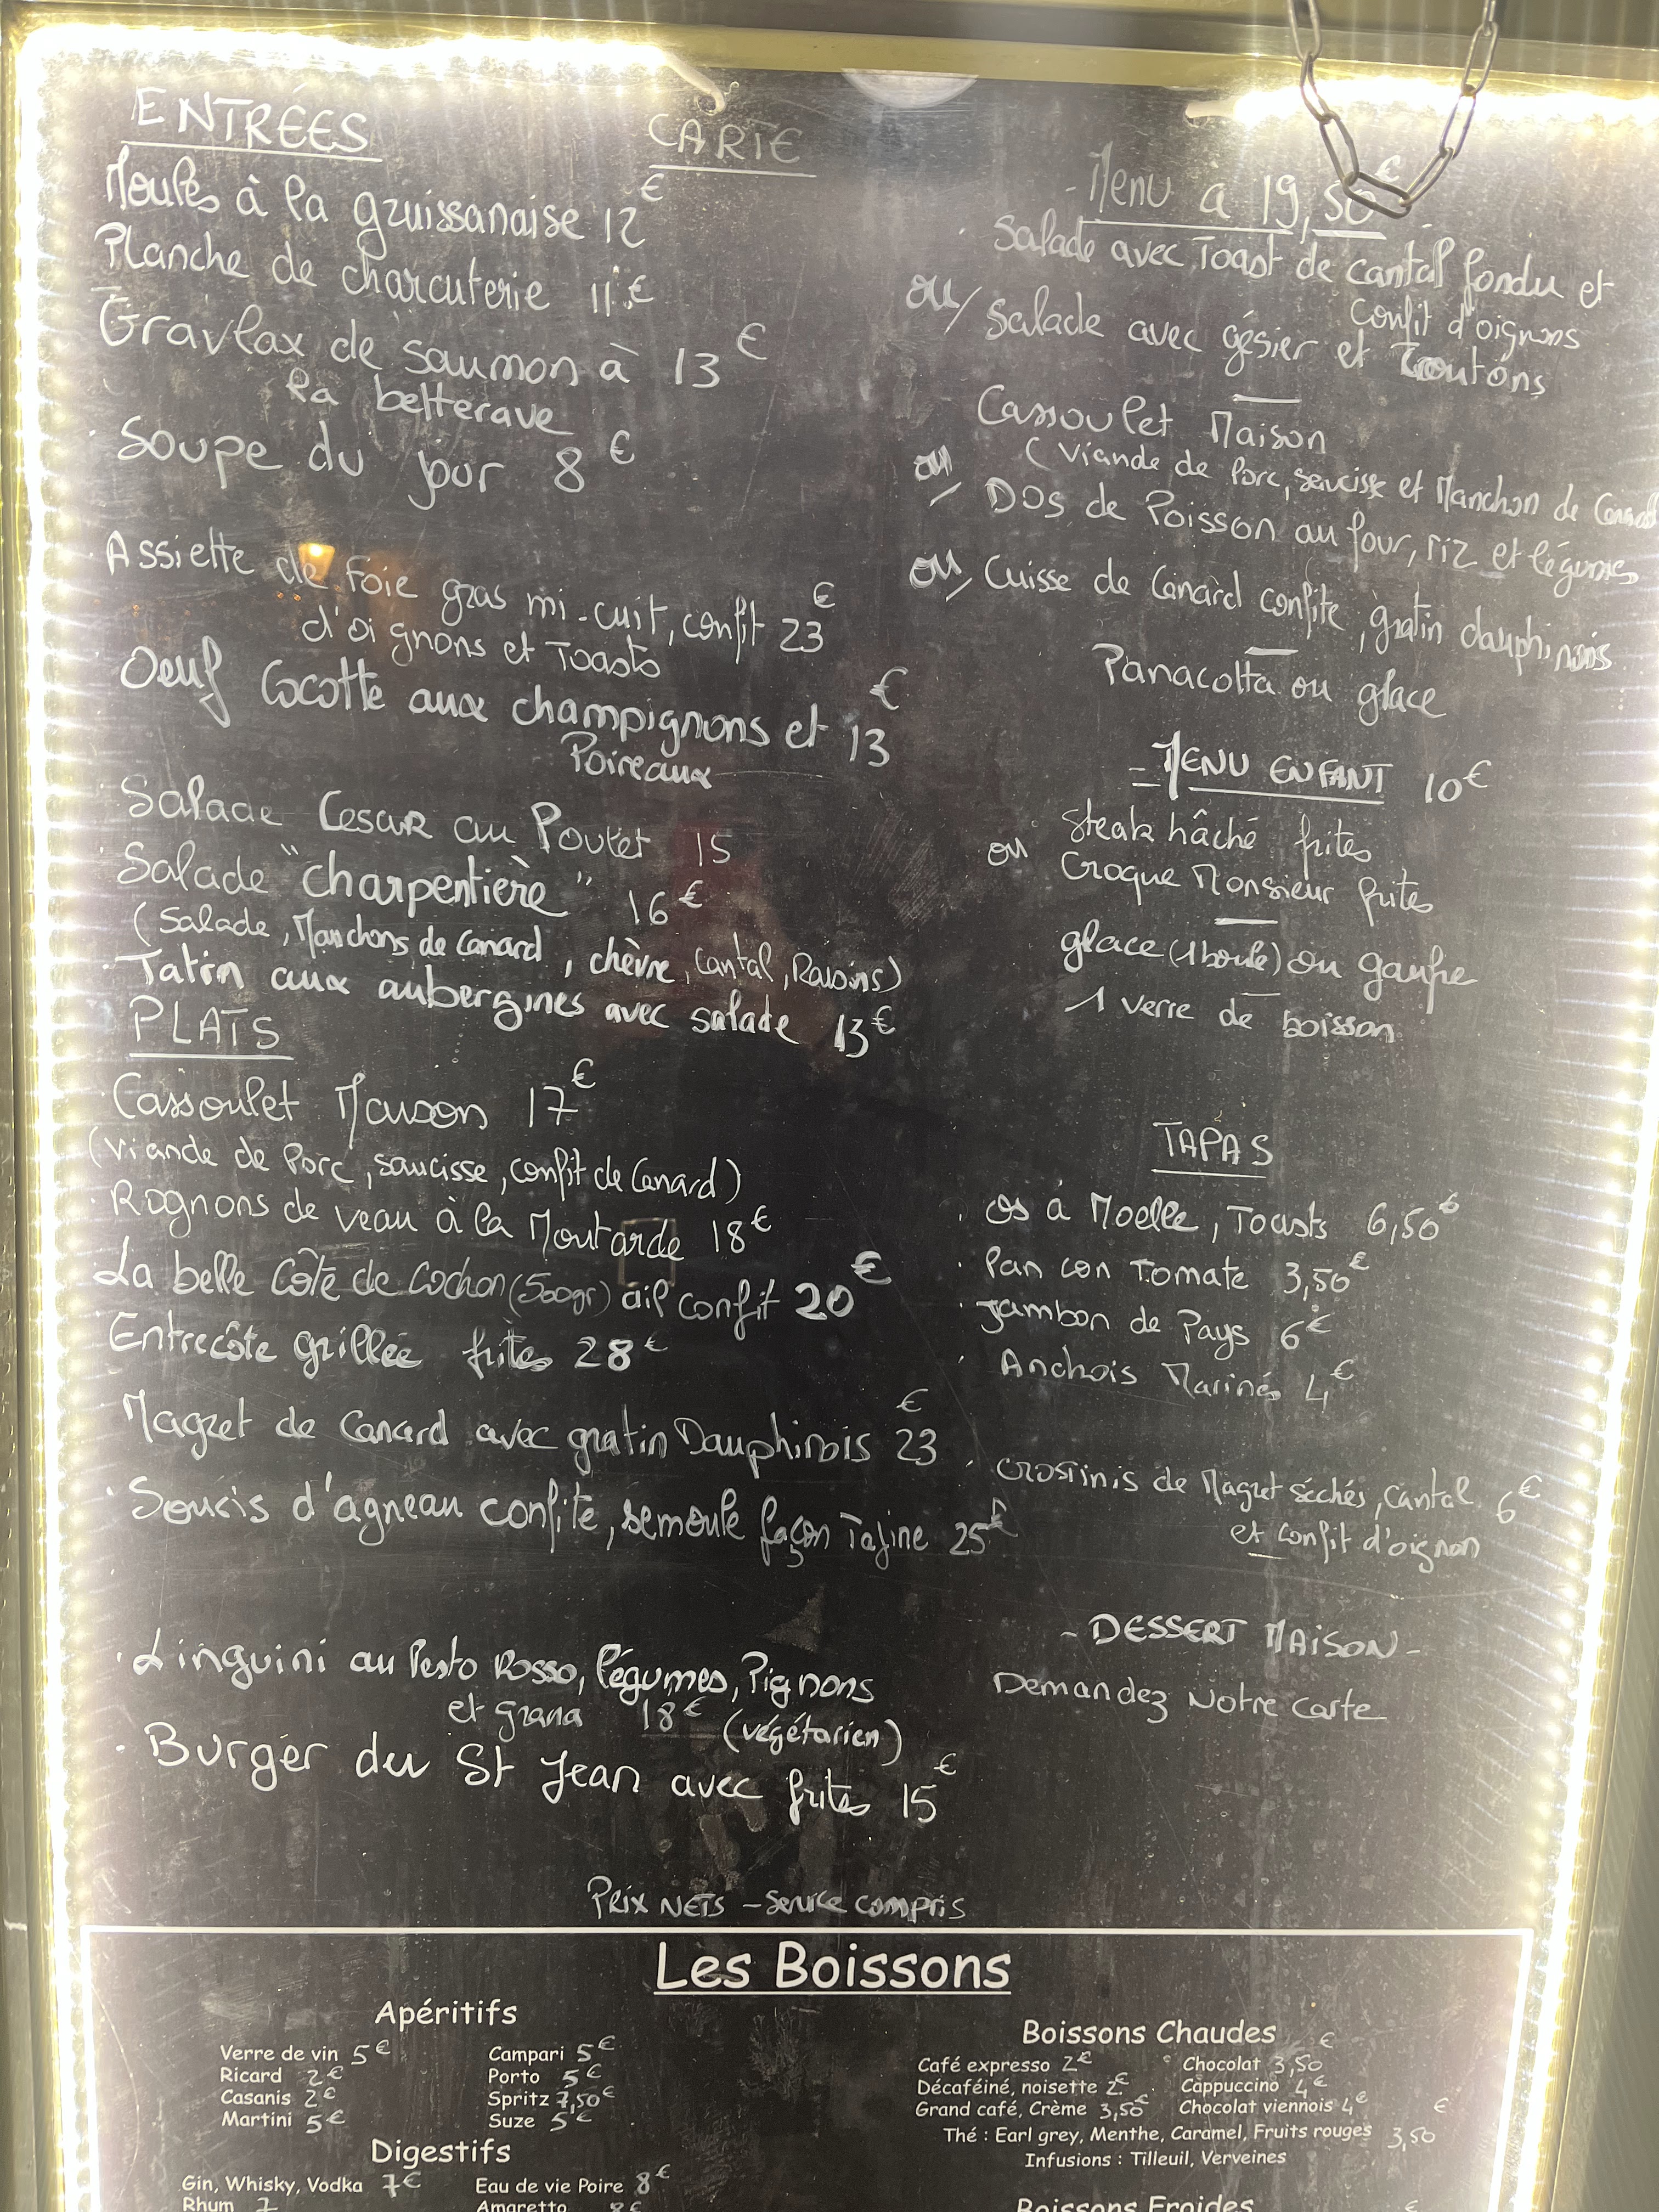 ENTRÉES
CARTE
Moules à la gruissanaise 12€
Planche de charcuterie 11€
Gravlax de saumon à 13€
la betterave
Soupe du jour 8€
Assiette de foie gras mi-cuit, confit 23€
d'oignons et Toasts
Oeuf Cocotte aux champignons et 13€
Poireaux
Salade Cesar au Poulet 15
Salade "charpentière" 16€
(Salade, Manchons de Canard, chèvre, Cantal, Raisins)
Tatin aux aubergines avec salade 13€
PLATS
Cassoulet Maison 17€
(Viande de Porc, saucisse, confit de Canard)
Rognons de veau à la Moutarde 18€
La belle Côte de Cochon (500gr) ail confit 20€
Entrecôte grillée frites 28€
Magret de Canard avec gratin Dauphinois 23€
Soucis d'agneau confite, semoule façon Tajine 25€
Linguini au Pesto Rosso, légumes, Pignons
et grana 18€ (végétarien)
Burger du St Jean avec frites 15€
- Menu a 19,50€
Salade avec Toast de cantal fondu et
confit d'oignons
ou/ Salade avec gésier et Croutons
Cassoulet Maison
(Viande de Porc, saucisse et Manchon de Canard
ou/ Dos de Poisson au four, riz et légumes
ou/ Cuisse de Canard confite, gratin dauphinois
Panacotta ou glace
- MENU ENFANT 10€
Steak hâché frites
ou Croque Monsieur frites
glace (1 boule) ou gaufre
1 verre de boisson
TAPAS
Os à Moelle, Toasts 6,50€
Pan con Tomate 3,50€
Jambon de Pays 6€
Anchois Marinés 4€
Crostinis de Magret séchés, Cantal 6€
et confit d'oignon
- DESSERT MAISON -
Demandez Notre Carte
PRIX NETS - Service compris
Les Boissons
Apéritifs
Verre de vin 5€
Ricard 2€
Casanis 2€
Martini 5€
Campari 5€
Porto 5€
Spritz 7,50€
Suze 5€
Digestifs
Gin, Whisky, Vodka 7€
Rhum 7
Eau de vie Poire 8€
Amaretto 8€
Boissons Chaudes €
Café expresso 2€
Décaféiné, noisette 2€
Grand café, Crème 3,50€
Chocolat 3,50
Cappuccino 4€
Chocolat viennois 4€
Thé : Earl grey, Menthe, Caramel, Fruits rouges 3,50€
Infusions : Tilleul, Verveines
Boissons Froides €